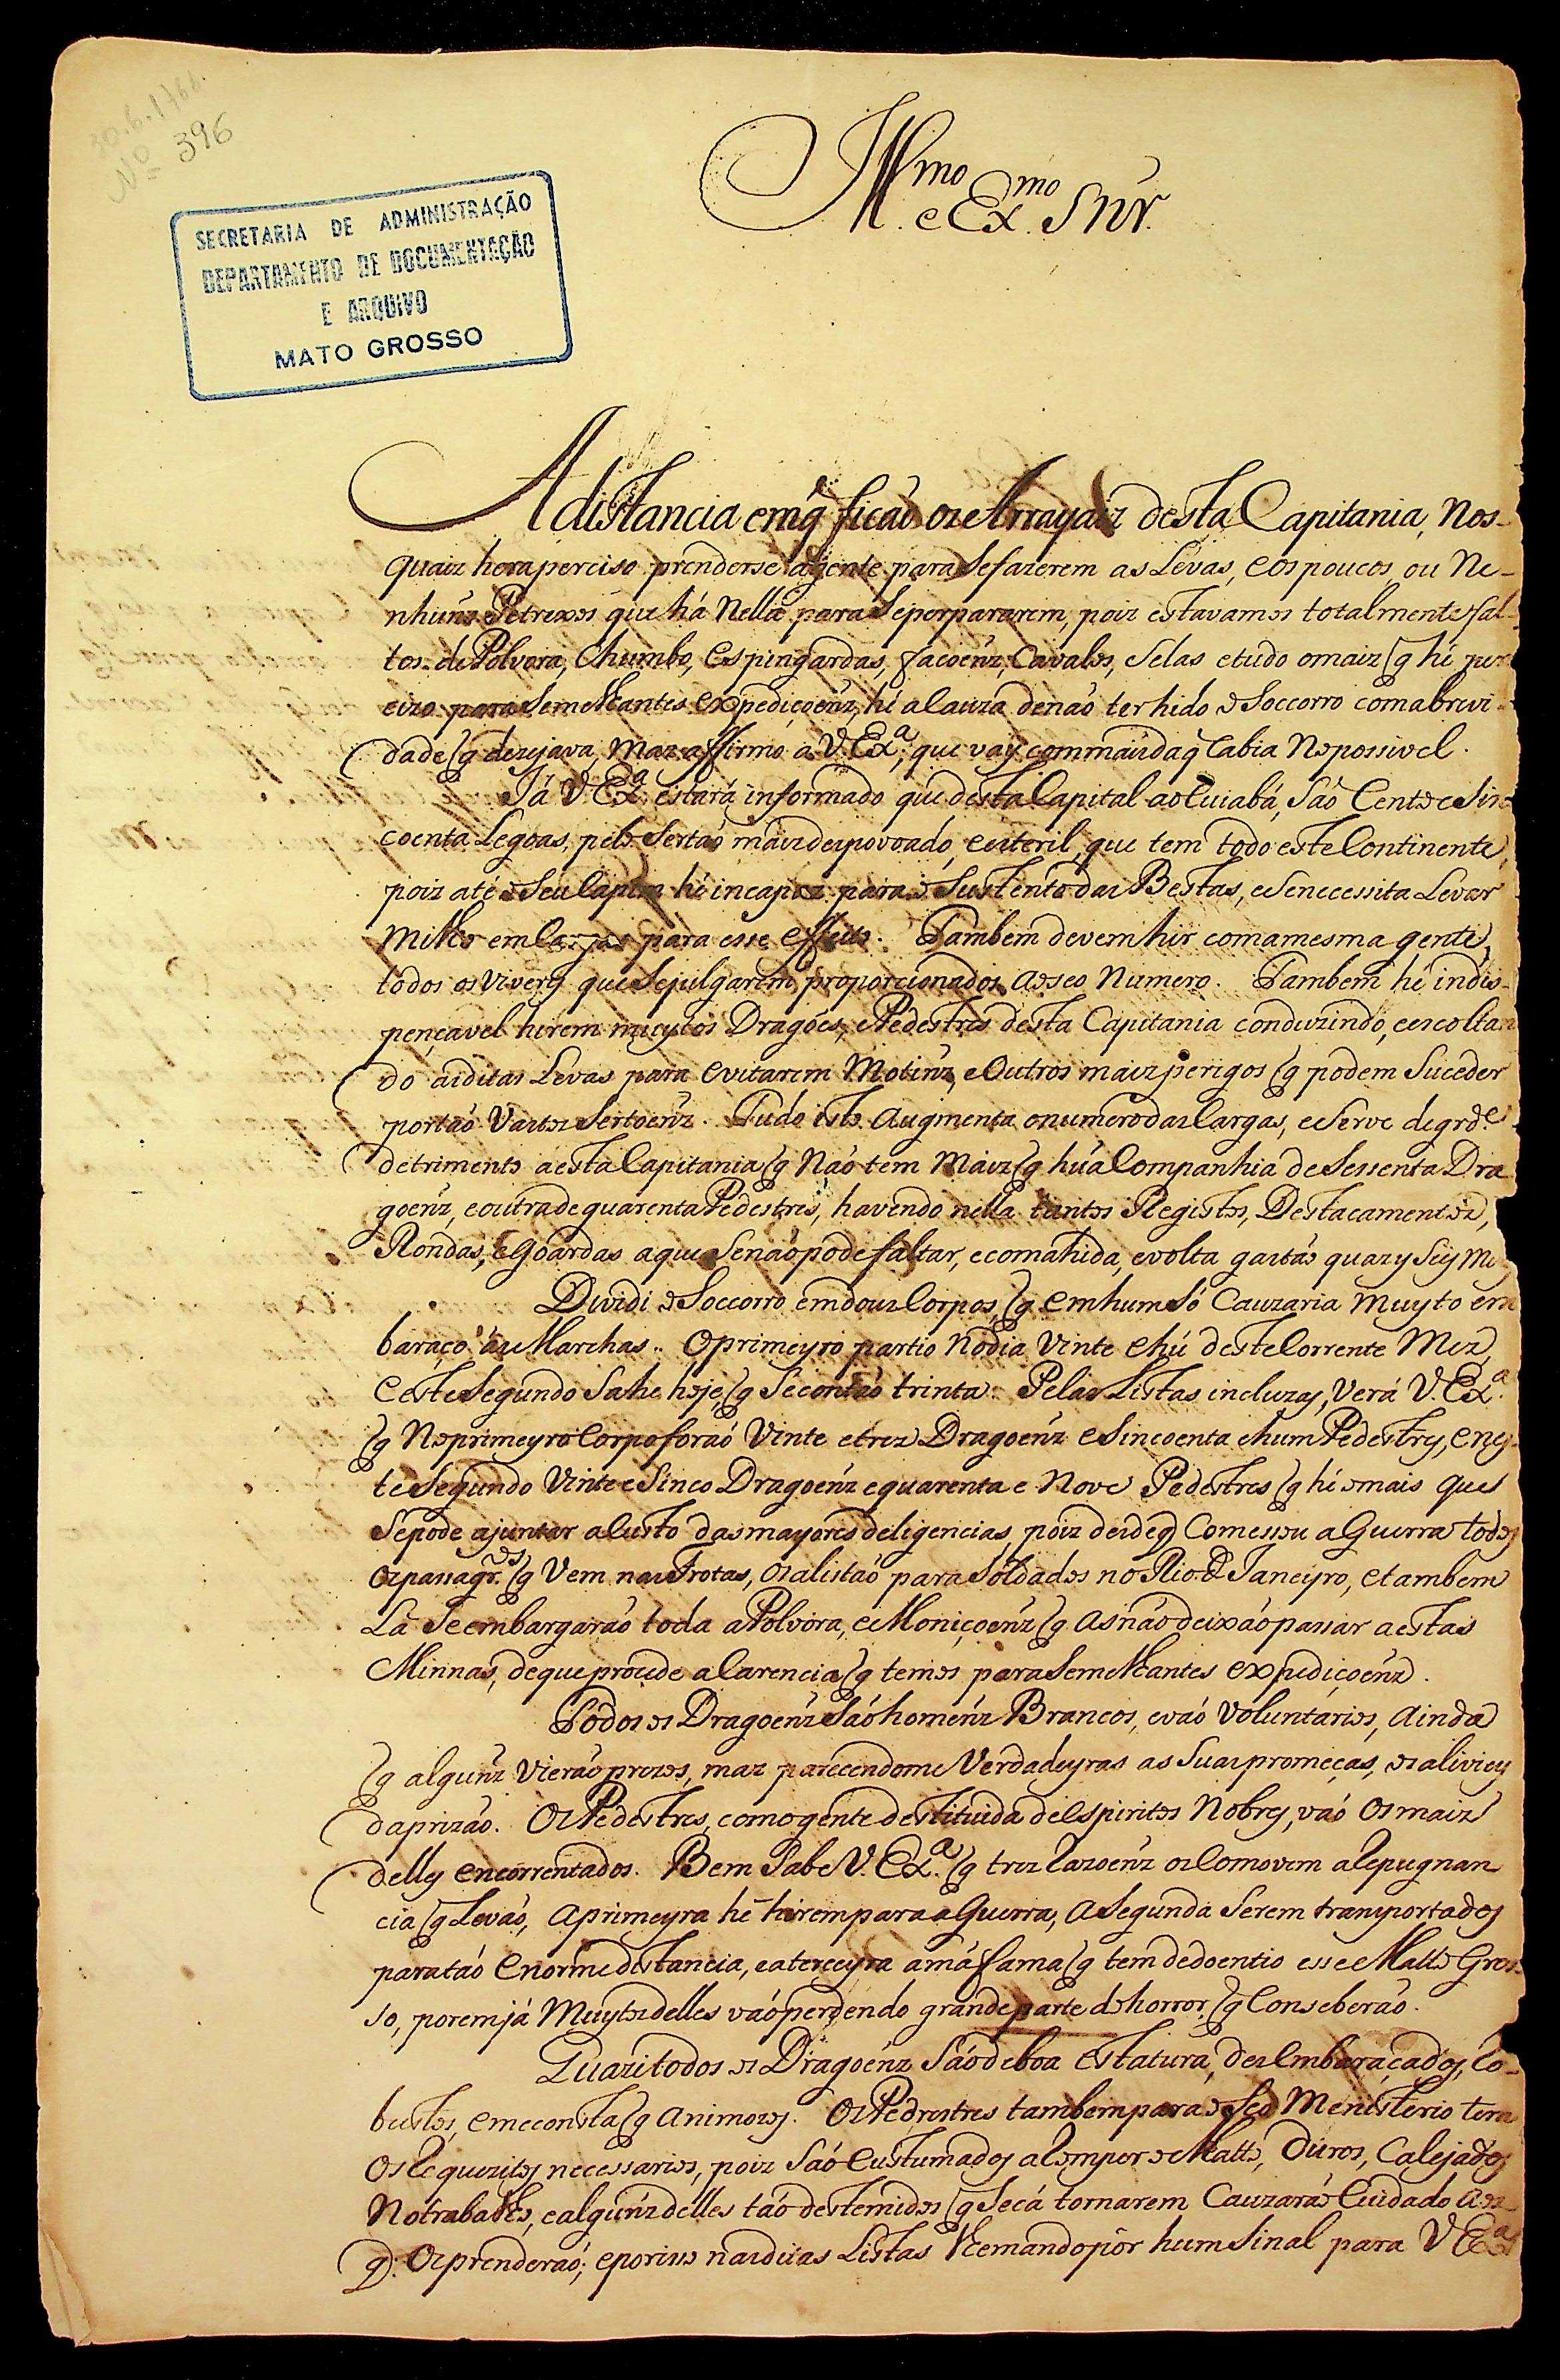 30.6.1766.
Nº 396
SECRETARIA DE ADMINISTRAÇÃO
DEPARTAMENTO DE DOCUMENTAÇÃO
E ARQUIVO
MATO GROSSO
Illmo. e Exmo. Snr.
A distancia emq̃ ficaõ os Arrayaiz desta Capitania, Nos-
quaiz hera perciso prenderse a gente para se fazerem as Levas, e os poucos, ou Ne-
nhunz Petrexos que há Nella para se perpararem, poiz estavamos totalmente fal-
tos de Polvora, Chumbo, Espingardas, facoenz, Cavalos, Selas e tudo o maiz q̃ hé per
cizo para Semelhantes expediçoenz, hé a Cauza de naõ ter hido o Soccorro com a brevi-
dade q̃ dezejava, maz affirmo a V. Exª, que vay com mais do q̃ Cabia No possivel.
Já V. Exª estará informado que desta Capital ao Cuiabá, Saõ Cento e Sin
coenta Legoas, pelo Sertaõ maiz despovoado, e esteril, que tem todo este Continente,
poiz até o Seu Capim hé incapaz para o Sustento das Bestas, e Se necessita Levar
Milho em Cargas para esse effeito. Tambem devem hir com a mesma gente,
todos os viveres que Se julgarem proporcionados ao seo Numero. Tambem hé indis-
pençavel hirem muytos Dragoés, e Pedestres desta Capitania conduzindo, e escoltan
do as ditas Levas para evitarem Motinz, e Outros maiz perigos q̃ podem Suceder
por taõ Vastos Sertoenz. Tudo isto augmenta o numero das Cargas, e Serve de grde
detrimento a esta Capitania q̃ Naõ tem Maiz q̃ huã Companhia de Sessenta Dra
goenz, e outra de quarenta Pedestres, havendo nella tantos Registos, Destacamentos,
Rondas, e Goardas a que Se naõ pode faltar, e com a hida, e volta gastaõ quazy Sey Me
Dividi o Soccorro em dous Corpos, q̃ em hum Só Cauzaria Muyto em
baraço ás Marchas. O primeyro partio No dia Vinte e hũ deste Corrente Mez,
e este Segundo Sahe hoje, q̃ Se contaõ trinta. Pelas Listas incluzas, Verá V. Exª
q̃ No primeyro Corpo foraõ Vinte e trez Dragoenz e Sincoenta e hum Pedestres, e nes-
te Segundo Vinte e Sinco Dragoenz e quarenta e Nove Pedestres q̃ hé o mais que
Se pode ajuntar a Custo das mayores deligencias, poiz desde q̃ Comessou a Guerra todos
os passagros q̃ Vem nas Frotas, os alistaõ para Soldados no Rio de Janeyro, e tambem
Lá Se embargaraõ toda a Polvora, e Moniçoenz q̃ as naõ deixaõ passar a estas
Minnas, de que procede a Carencia q̃ temos para Semelhantes expediçoenz.
Todos os Dragoenz Saõ homenz Brancos, e vaõ Voluntarios, ainda
q̃ algunz Vieraõ prezos, maz parecendome Verdadeyras as Suas promeças, os aliviey
da prizaõ. Os Pedestres, como gente destituida de espiritos Nobres, vaõ Os maiz
delles encorrentados. Bem Sabe V. Exª q̃ trez Razoenz os Comovem a Repugnan
cia q̃ Levaõ, a primeyra hé hirem para a Guerra, a Segunda Serem transportados
para taõ enorme distancia, e a terceyra a má fama q̃ tem de doentio esse Matto Gros-
so, porem já Muytos delles vaõ perdendo grande parte do horror, q̃ Conseberaõ.
Quazi todos os Dragoenz Saõ de boa estatura, dezembaraçados, Ro-
bustos, e me consta q̃ animozos. Os Pedrestres tambem para o Seo Menisterio tem
Os Requezitos necessarios, poiz Saõ Custumados a Romper o Matto, Duros, Calejados
No trabalho, e algunz delles taõ destemidos q̃ Se cá tornarem Cauzaraõ Cuidado aos
q̃ Os prenderaõ; e por isso nas ditas Listas lhe mando pôr hum Sinal para V Exª